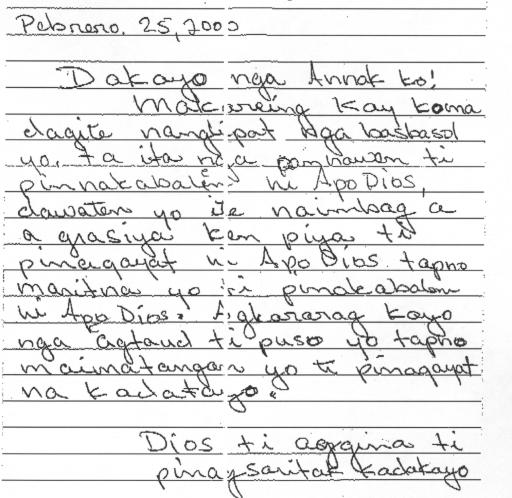 Pebrero. 25, 2000
Dakayo nga Annak ko!
Makiureing kay koma
dagite nangipat nga basbasol
yo. ta ita nga panawen ti
pinnakabalin ni Apo Dios,
dawaten yo ite naimbag a
a grasiya ken piya ti
pinagayat ni Apo Dios tapno
maritna yo ti pinakabalin
ni Apo Dios. Agkararag kayo
nga agtaud ti puso yo tapno
maimatangan yo ti pinagayat
na kadatayo.
Dios ti aggina ti
pinagsaritak kadakayo